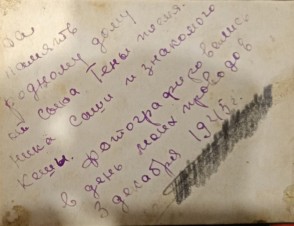 на
память
родному дому
от сына Гены, племя-
ника Саши и знакомого
Кеши. Фотографировались
в день моих проводов
3 декабря 194